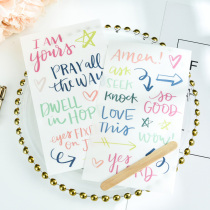 I AM
yours
PRAY ALL
the WAY
DWELL
in HOPE
eyes FIXED
ON J
Amen!
ask
SEEK
knock
SO
GOOD
LOVE
this
wow!
yes